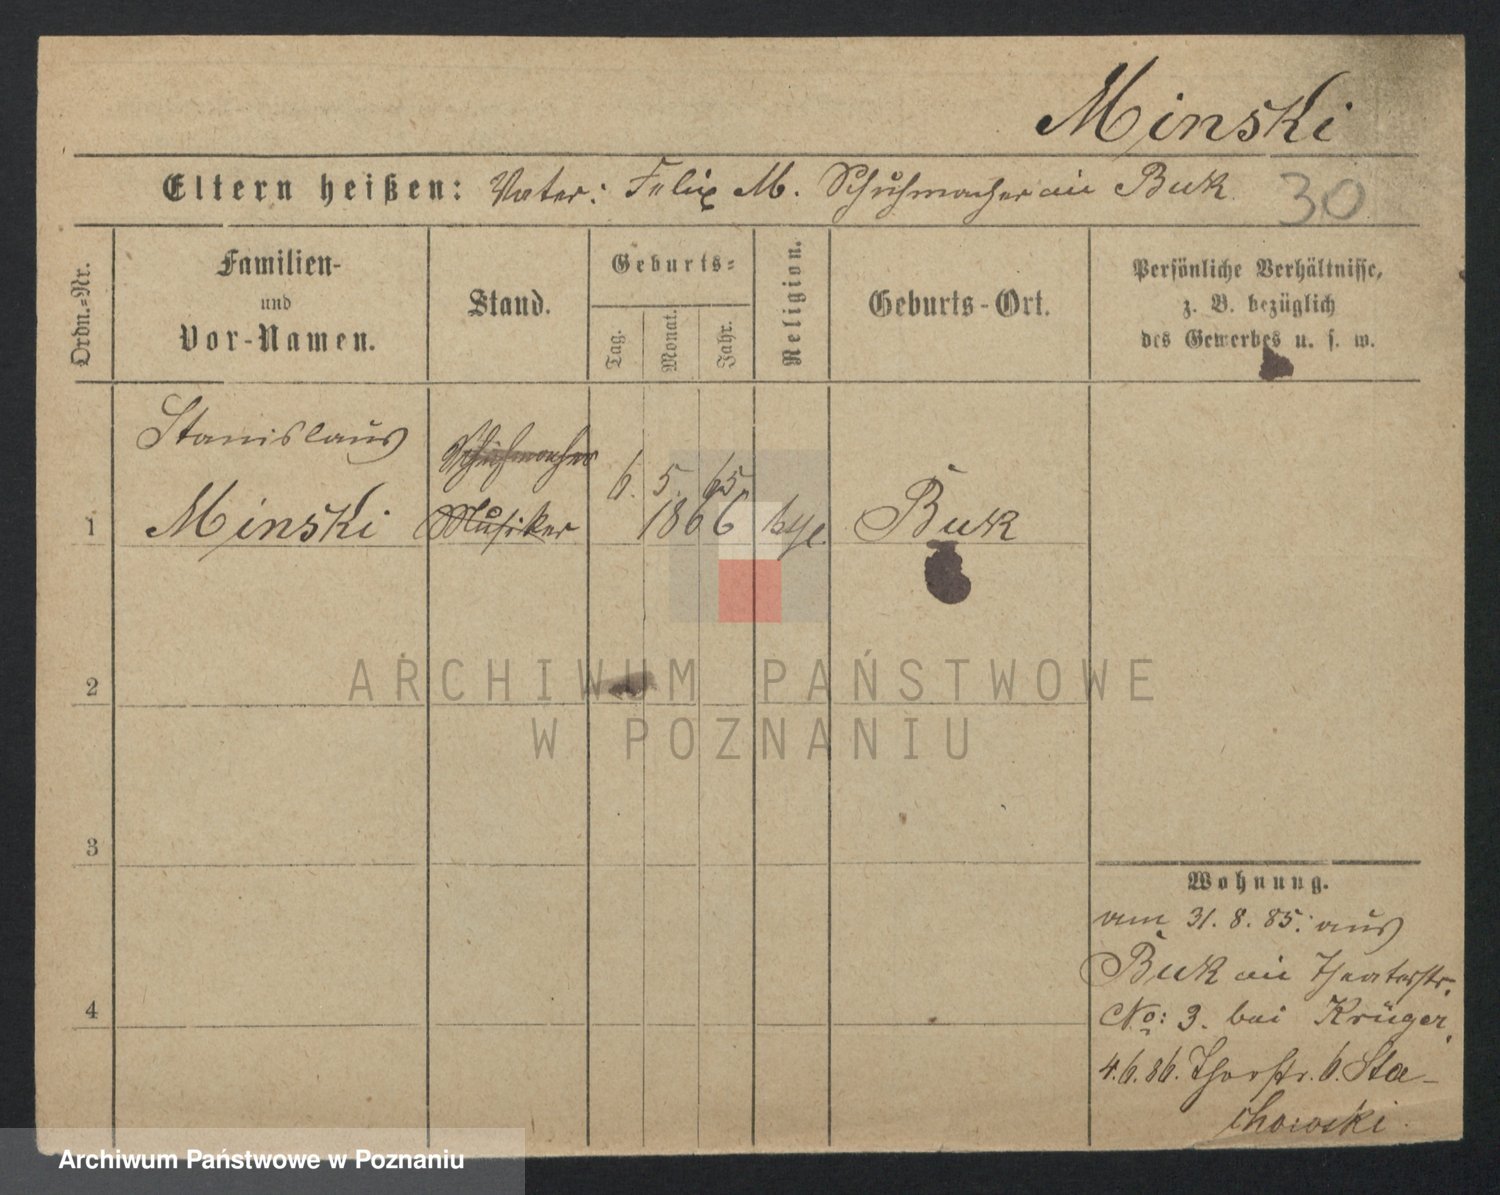 Minski
Eltern heißen: Vater: Felix M. Schuhmacher in Buk.
30
Ordn.-Nr.
Familien-
und
Vor-Namen.
Stand.
Geburts-
Tag.
Monat.
Jahr.
Religion.
Geburts-Ort.
Persönliche Verhältnisse,
z. B. bezüglich
des Gewerbes u. s. w.
1
Stanislaus
Minski
Schuhmacher
Musiker
6. 5. 65
1866
Buk
2
3
4
Wohnung.
am 31. 8. 85. aus
Buk in Theaterstr.
No: 3. bei Krüger.
4.6.86. Thorstr. 6. Sta-
chowski.
ARCHIWUM PAŃSTWOWE
W POZNANIU
Archiwum Państwowe w Poznaniu